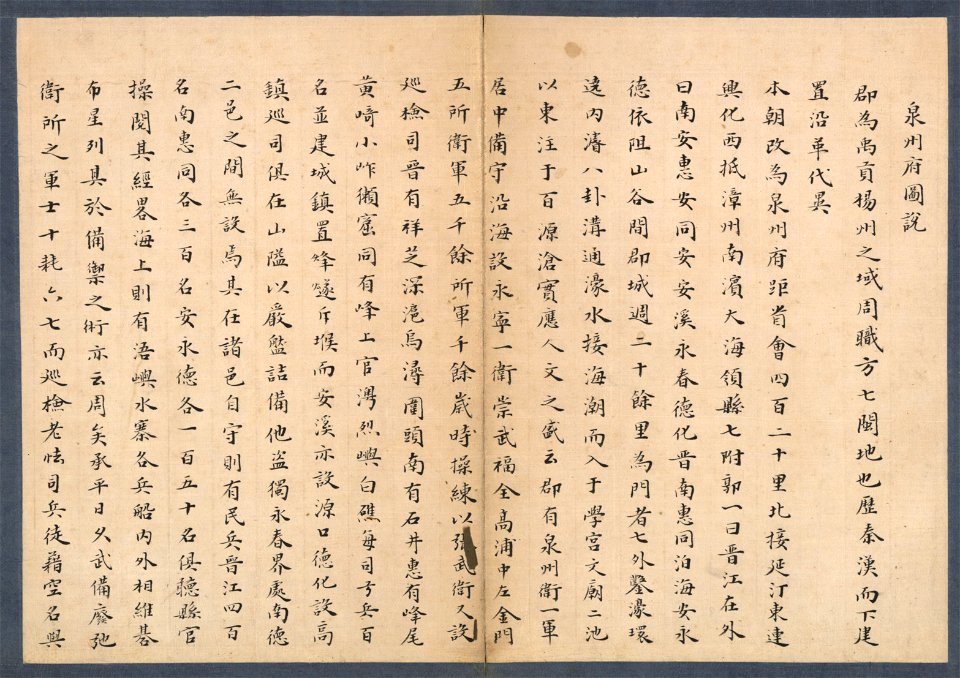 泉州府圖說
郡為禹貢揚州之域周職方七閩地也歷秦漢而下建
置沿革代異
本朝改為泉州府距省會四百二十里北接延汀東連
興化西抵漳州南濱大海領縣七附郭一曰晉江在外
曰南安惠安同安安溪永春德化晉南惠同泊海安永
德依阻山谷間郡城週二十餘里為門者七外鑿濠環
遶內濬八卦溝通濠水接海潮而入于學宮文廟二池
以東注于百源滄實應人文之盛云郡有泉州衛一軍
居中備守沿海設永寧一衛崇武福全高浦中左金門
五所衛軍五千餘所軍千餘歲時操練以張武衛又說
廵檢司晉有祥芝深滬烏潯圍頭南有石井惠有峰尾
黃崎小岞獺窟同有峰上官澳烈嶼白礁每司弓兵百
名並建城鎮置烽燧斥堠而安溪亦設源口德化設高
鎮廵司俱在山隘以嚴盤詰備他盜獨永春界處南德
二邑之間無設焉其在諸邑自守則有民兵晉江四百
名南惠同各三百名安永德各一百五十名俱聽縣官
操閱其經畧海上則有浯嶼水寨各兵船內外相維碁
布星列具於備禦之術亦云周矣承平日久武備廢弛
衛所之軍士十耗六七而廵檢老怯司兵徒藉空名與